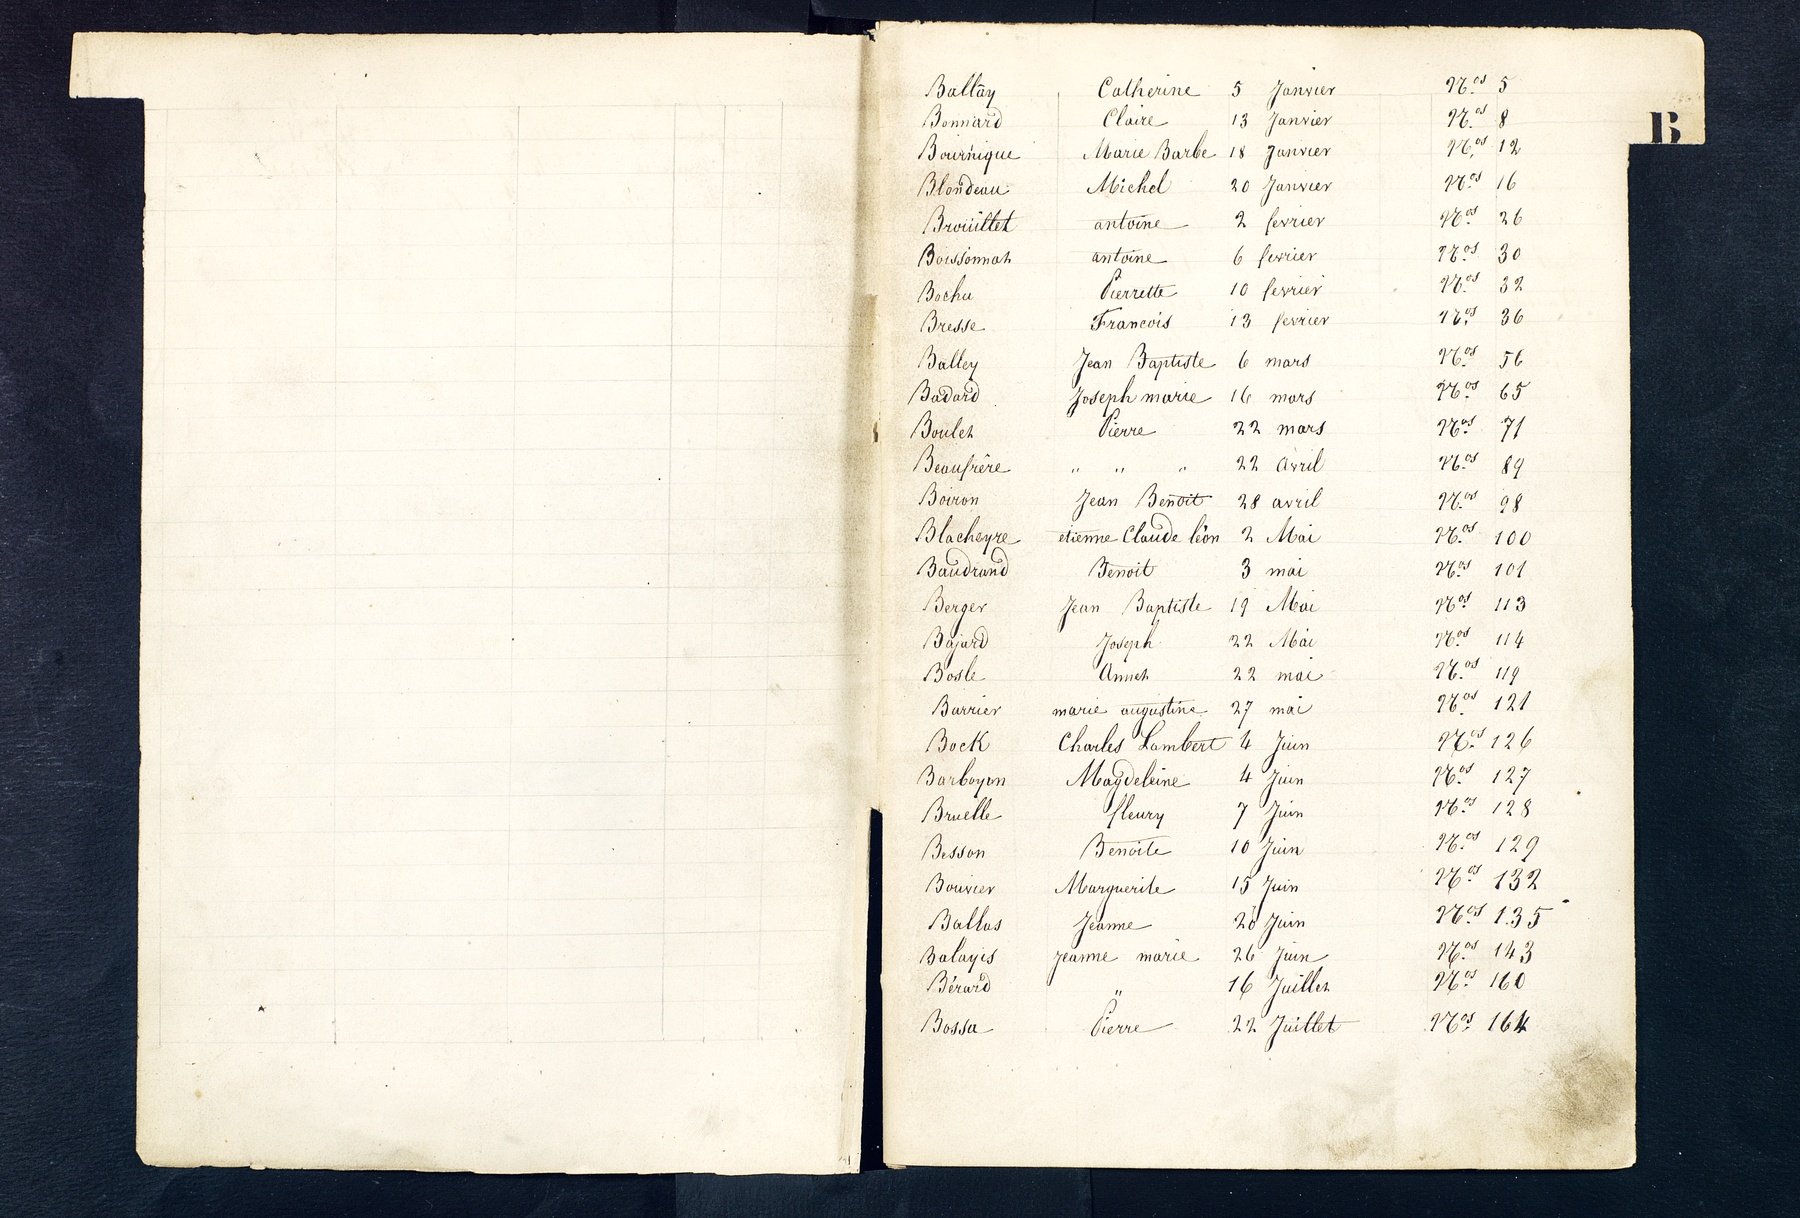 B
Ballay Catherine 5 Janvier Nos 5
Bonnard Claire 13 Janvier Nos 8
Bournique Marie Barbe 18 Janvier Nos 12
Blondeau Michel 20 Janvier Nos 16
Brouillet antoine 2 fevrier Nos 26
Boissonnat antoine 6 fevrier Nos 30
Bochu Pierrette 10 fevrier Nos 32
Bresse Francois 13 fevrier Nos 36
Balley Jean Baptiste 6 mars Nos 56
Badard Joseph marie 16 mars Nos 65
Boulet Pierre 22 mars Nos 71
Beaufrère " " " 22 avril Nos 89
Boiron Jean Benoit 28 avril Nos 98
Blacheyre etienne Claude léon 2 Mai Nos 100
Baudrand Benoit 3 mai Nos 101
Berger Jean Baptiste 19 Mai Nos 113
Bajard Joseph 22 Mai Nos 114
Bosle Annet 22 mai Nos 119
Barrier marie augustine 27 mai Nos 121
Bock Charles Lambert 4 Juin Nos 126
Barboyon Magdeleine 4 Juin Nos 127
Bruelle fleury 7 Juin Nos 128
Besson Benoite 10 Juin Nos 129
Bouvier Marguerite 15 Juin Nos 132
Ballas Jeanne Juin Nos 135
Balayis jeanne marie 26 Juin Nos 143
Bérard " 16 Juillet Nos 160
Bossa Pierre 22 Juillet Nos 164